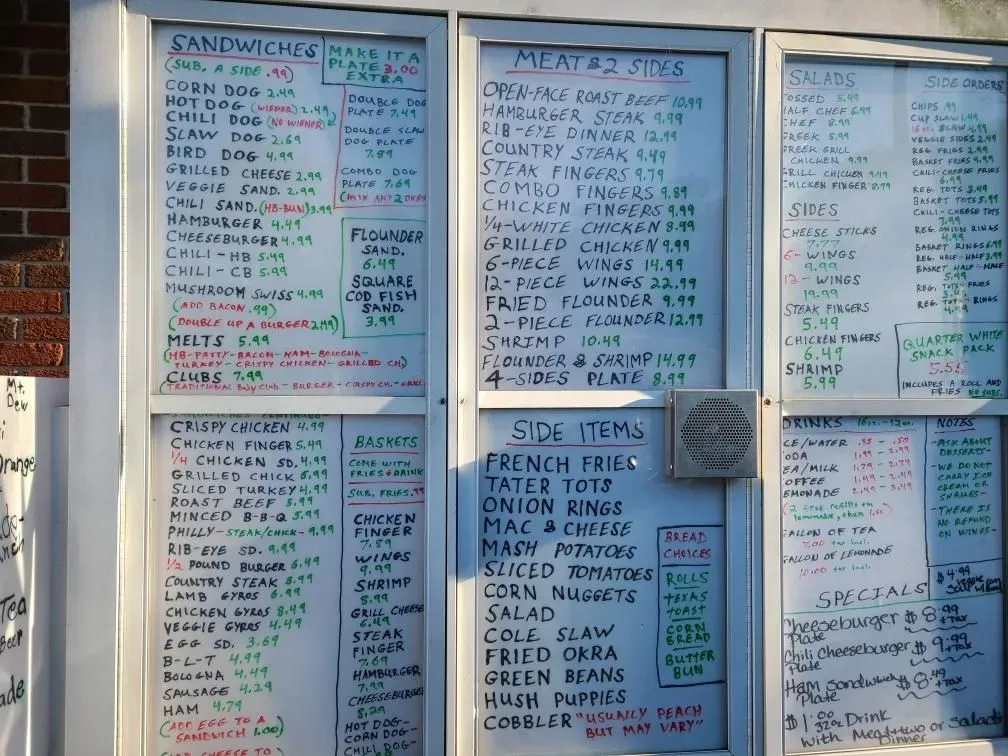 SANDWICHES
(SUB. A SIDE .99)
MAKE IT A
PLATE 3.00
EXTRA
CORN DOG 2.49
HOT DOG (WIENER) 2.49
CHILI DOG (NO WIENER)
SLAW DOG 2.69
BIRD DOG 4.99
GRILLED CHEESE 2.99
VEGGIE SAND. 2.99
CHILI SAND. (HB-BUN) 3.99
HAMBURGER 4.49
CHEESEBURGER 4.99
CHILI-HB 5.49
CHILI-CB 5.99
MUSHROOM SWISS 4.99
(ADD BACON .99)
(DOUBLE UP A BURGER 2.49)
MELTS 5.99
(HB-PATTY-BACON-HAM-BOLOGNA-
TURKEY-CRISPY CHICKEN-GRILLED CH)
CLUBS 7.99
DOUBLE DOG
PLATE 7.49
DOUBLE SLAW
DOG PLATE
7.89
COMBO DOG
PLATE 7.69
(MIX ANY 2 DOGS
FLOUNDER
SAND.
6.49
SQUARE
COD FISH
SAND.
3.99
CRISPY CHICKEN 4.99
CHICKEN FINGER 5.49
1/4 CHICKEN SD. 4.99
GRILLED CHICK 6.99
SLICED TURKEY 4.99
ROAST BEEF 5.99
MINCED B-B-Q 5.99
PHILLY-STEAK/CHICK- 9.99
RIB-EYE SD. 9.99
1/2 POUND BURGER 6.49
COUNTRY STEAK 5.99
LAMB GYROS 6.99
CHICKEN GYROS 8.49
VEGGIE GYROS 4.49
EGG SD. 3.69
B-L-T 4.99
BOLOGNA 4.49
SAUSAGE 4.29
HAM 4.79
(ADD EGG TO A
SANDWICH 1.00)
BASKETS
COME WITH
FRIES & DRINK
SUB. FRIES .99
CHICKEN
FINGER
7.89
WINGS
9.99
SHRIMP
8.99
GRILL CHEESE
6.49
STEAK
FINGER
7.69
HAMBURGER
7.99
CHEESEBURGER
8.29
HOT DOG-
CORN DOG-
CHILI DOG-
MEAT & 2 SIDES
OPEN-FACE ROAST BEEF 10.99
HAMBURGER STEAK 9.99
RIB-EYE DINNER 12.99
COUNTRY STEAK 9.49
STEAK FINGERS 9.79
COMBO FINGERS 9.89
CHICKEN FINGERS 9.99
1/4-WHITE CHICKEN 8.99
GRILLED CHICKEN 9.99
6-PIECE WINGS 14.99
12-PIECE WINGS 22.99
FRIED FLOUNDER 9.99
2-PIECE FLOUNDER 12.99
SHRIMP 10.49
FLOUNDER & SHRIMP 14.99
4-SIDES PLATE 8.99
SIDE ITEMS
FRENCH FRIES
TATER TOTS
ONION RINGS
MAC & CHEESE
MASH POTATOES
SLICED TOMATOES
CORN NUGGETS
SALAD
COLE SLAW
FRIED OKRA
GREEN BEANS
HUSH PUPPIES
COBBLER "USUALLY PEACH
BUT MAY VARY"
BREAD
CHOICES
ROLLS
TEXAS
TOAST
CORN
BREAD
BUTTER
BUN
SALADS
OSSED 5.99
HALF CHEF 6.49
CHEF 8.99
REEK 5.99
REEK GRILL
CHICKEN 9.99
GRILL CHICKEN 9.49
CHICKEN FINGER 8.99
SIDES
CHEESE STICKS
7.77
6-WINGS
9.99
12-WINGS
19.99
STEAK FINGERS
5.49
CHICKEN FINGERS
6.49
SHRIMP
5.99
SIDE ORDERS
CHIPS .99
CUP SLAW 1.49
16oz. SLAW 4.99
VEGGIE SIDES 2.49
REG. FRIES 2.99
BASKET FRIES 4.99
CHILI-CHEESE FRIES
6.99
REG. TOTS 3.49
BASKET TOTS 5.99
CHILI-CHEESE TOTS
7.99
REG. ONION RINGS
4.99
BASKET RINGS 6.99
REG. HALF-HALF 3.99
BASKET HALF-HALF
5.99
REG. TOTS-FRIES
REG. TOTS-RINGS
4.49
QUARTER WHITE
SNACK PACK
5.55
INCLUDES A ROLL AND
FRIES NO SUBS.
DRINKS 16oz.-32oz.
CE/WATER .35 - .50
ODA 1.99 - 2.99
EA/MILK 1.79 - 2.79
OFFEE 1.49 - 2.49
EMONADE 2.49 - 3.49
(2 free refills on
lemonade, then 1.00)
GALLON OF TEA
7.00 tax incl.
GALLON OF LEMONADE
10.00 tax incl.
NOTES
-ASK ABOUT
DESSERTS-
-WE DO NOT
CARRY ICE
CREAM OR
SHAKES-
-THERE IS
NO REFUND
ON WINGS-
SPECIALS
$4.99
Veggie
Cheeseburger $8.99
Plate +TAX
Chili Cheeseburger $9.99
Plate +TAX
Ham Sandwich $8.49
Plate +TAX
$1.00 32oz Drink
with Meat+two or Salads
Dinner
Mt.
Dew
range
Tea
Beer
ade